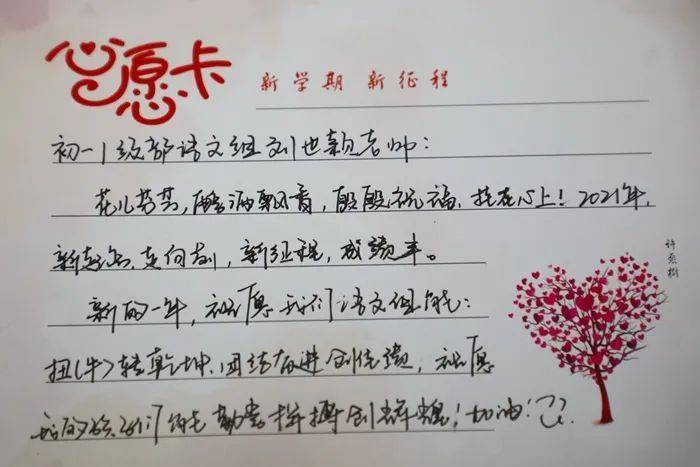 心愿卡
新学期 新征程
初一级部语文组刘也颖老师：
花儿芬芳，醇酒飘香，殷殷祝福，挂在心上！2021年，
新起点，走向前，新征程，成绩丰。
许愿树
新的一年，祝愿我们语文组能：
扭（牛）转乾坤，团结奋进创佳绩，祝愿
我的孩子们能勤学拼搏创辉煌！加油！